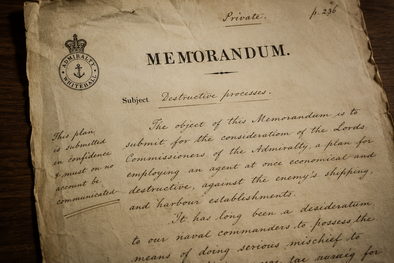 Private.
p. 236
ADMIRALTY
WHITEHALL
MEMORANDUM.
Subject Destructive processes.
This plan
is submitted
in confidence
& must on no
account be
communicated.
The object of this Memorandum is to
submit for the consideration of the Lords
Commissioners of the Admiralty, a plan for
employing an agent at once economical and
destructive, against the enemy's shipping,
and harbour establishments.
It has long been a desideratum
to our naval commanders to possess the
means of doing serious mischief to
for